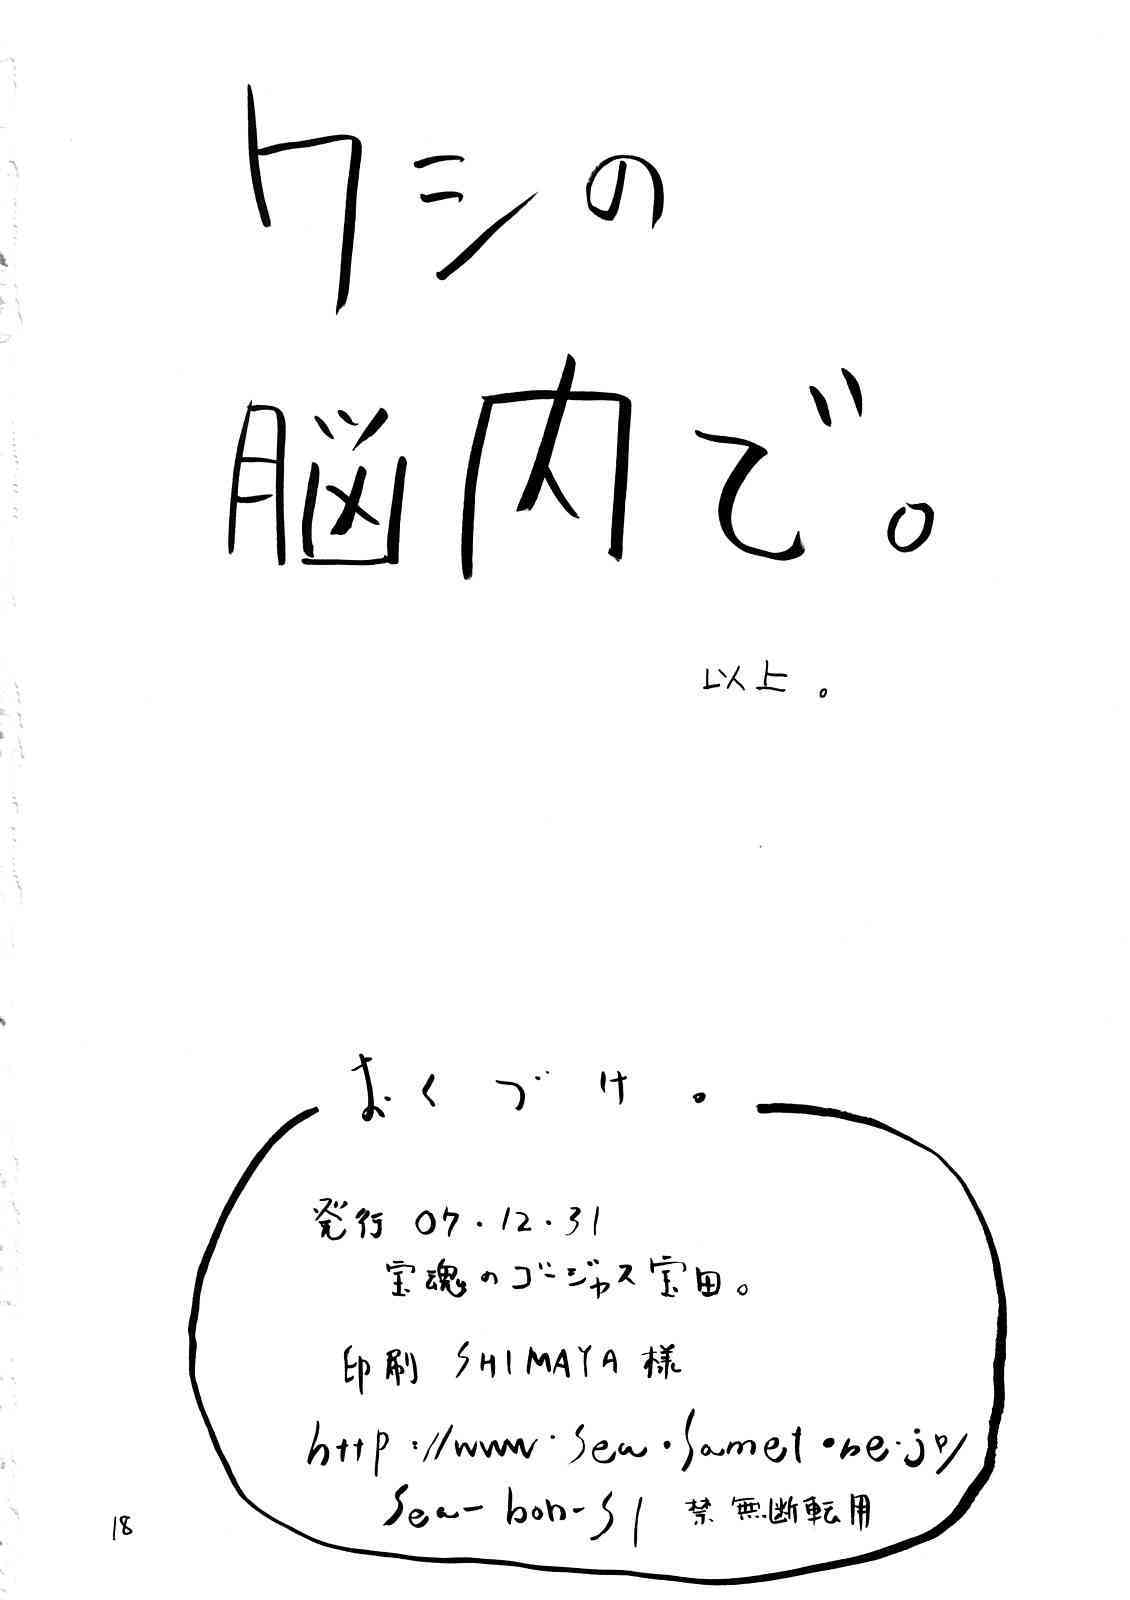 ワシの
脳内で。
以上。
おくづけ。
発行 07.12.31
宝魂のゴージャス宝田。
印刷 SHIMAYA様
http://www.sea.Samet.ne.jp/
sea-bon-s1 禁無断転用
18